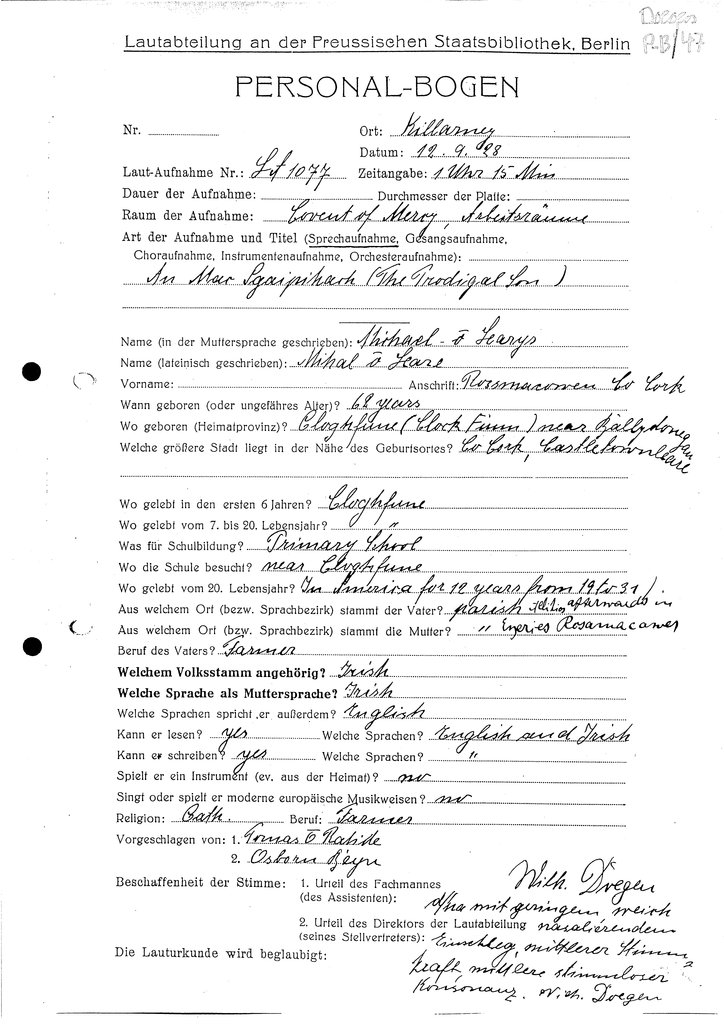 Doegen
Lautabteilung an der Preussischen Staatsbibliothek, Berlin
PERSONAL-BOGEN
Nr.
Ort: Killarney
Datum: 12. 9. 28
Laut-Aufnahme Nr.: LA 1077 Zeitangabe: 1 Uhr 15 Min
Dauer der Aufnahme: Durchmesser der Platte:
Raum der Aufnahme: Covent of Mercy, Arbeitsräume
Art der Aufnahme und Titel (Sprechaufnahme, Gesangsaufnahme,
Choraufnahme, Instrumentenaufnahme, Orchesteraufnahme):
An Mac Sgaipthach (The Prodigal Son)
Name (in der Muttersprache geschrieben): Michael ō Learys
Name (lateinisch geschrieben): Mihal ō Leare
Vorname: Anschrift: Rossmacowen Co Cork
Wann geboren (oder ungefähres Alter)? 68 years
Wo geboren (Heimatprovinz)? Cloghfune (Clock Finn) near Ballydonegan
Welche größere Stadt liegt in der Nähe des Geburtsortes? Co Cork, Castletownbeare
Wo gelebt in den ersten 6 Jahren? Cloghfune
Wo gelebt vom 7. bis 20. Lebensjahr? "
Was für Schulbildung? Primary School
Wo die Schule besucht? near Cloghfune
Wo gelebt vom 20. Lebensjahr? In America for 12 years from 19 to 31)
Aus welchem Ort (bezw. Sprachbezirk) stammt der Vater? parish afterwards in
Aus welchem Ort (bzw. Sprachbezirk) stammt die Mutter? " Eyeries Rosamacowes
Beruf des Vaters? Farmer
Welchem Volksstamm angehörig? Irish
Welche Sprache als Muttersprache? Irish
Welche Sprachen spricht er außerdem? English
Kann er lesen? yes Welche Sprachen? English and Irish
Kann er schreiben? yes Welche Sprachen? "
Spielt er ein Instrument (ev. aus der Heimat)? no
Singt oder spielt er moderne europäische Musikweisen? no
Religion: Cath. Beruf: Farmer
Vorgeschlagen von: 1. Tomas Ō Ratide
2. Osborn Beyn
Beschaffenheit der Stimme: 1. Urteil des Fachmannes
(des Assistenten):
Wilh. Doegen
mit geringem, weich
2. Urteil des Direktors der Lautabteilung
(seines Stellvertreters):
nasalierendem
Einschlag, mittlerer Stimm
Die Lauturkunde wird beglaubigt:
kraft, mittlere stimmloser
Konsonanz. Wilh. Doegen